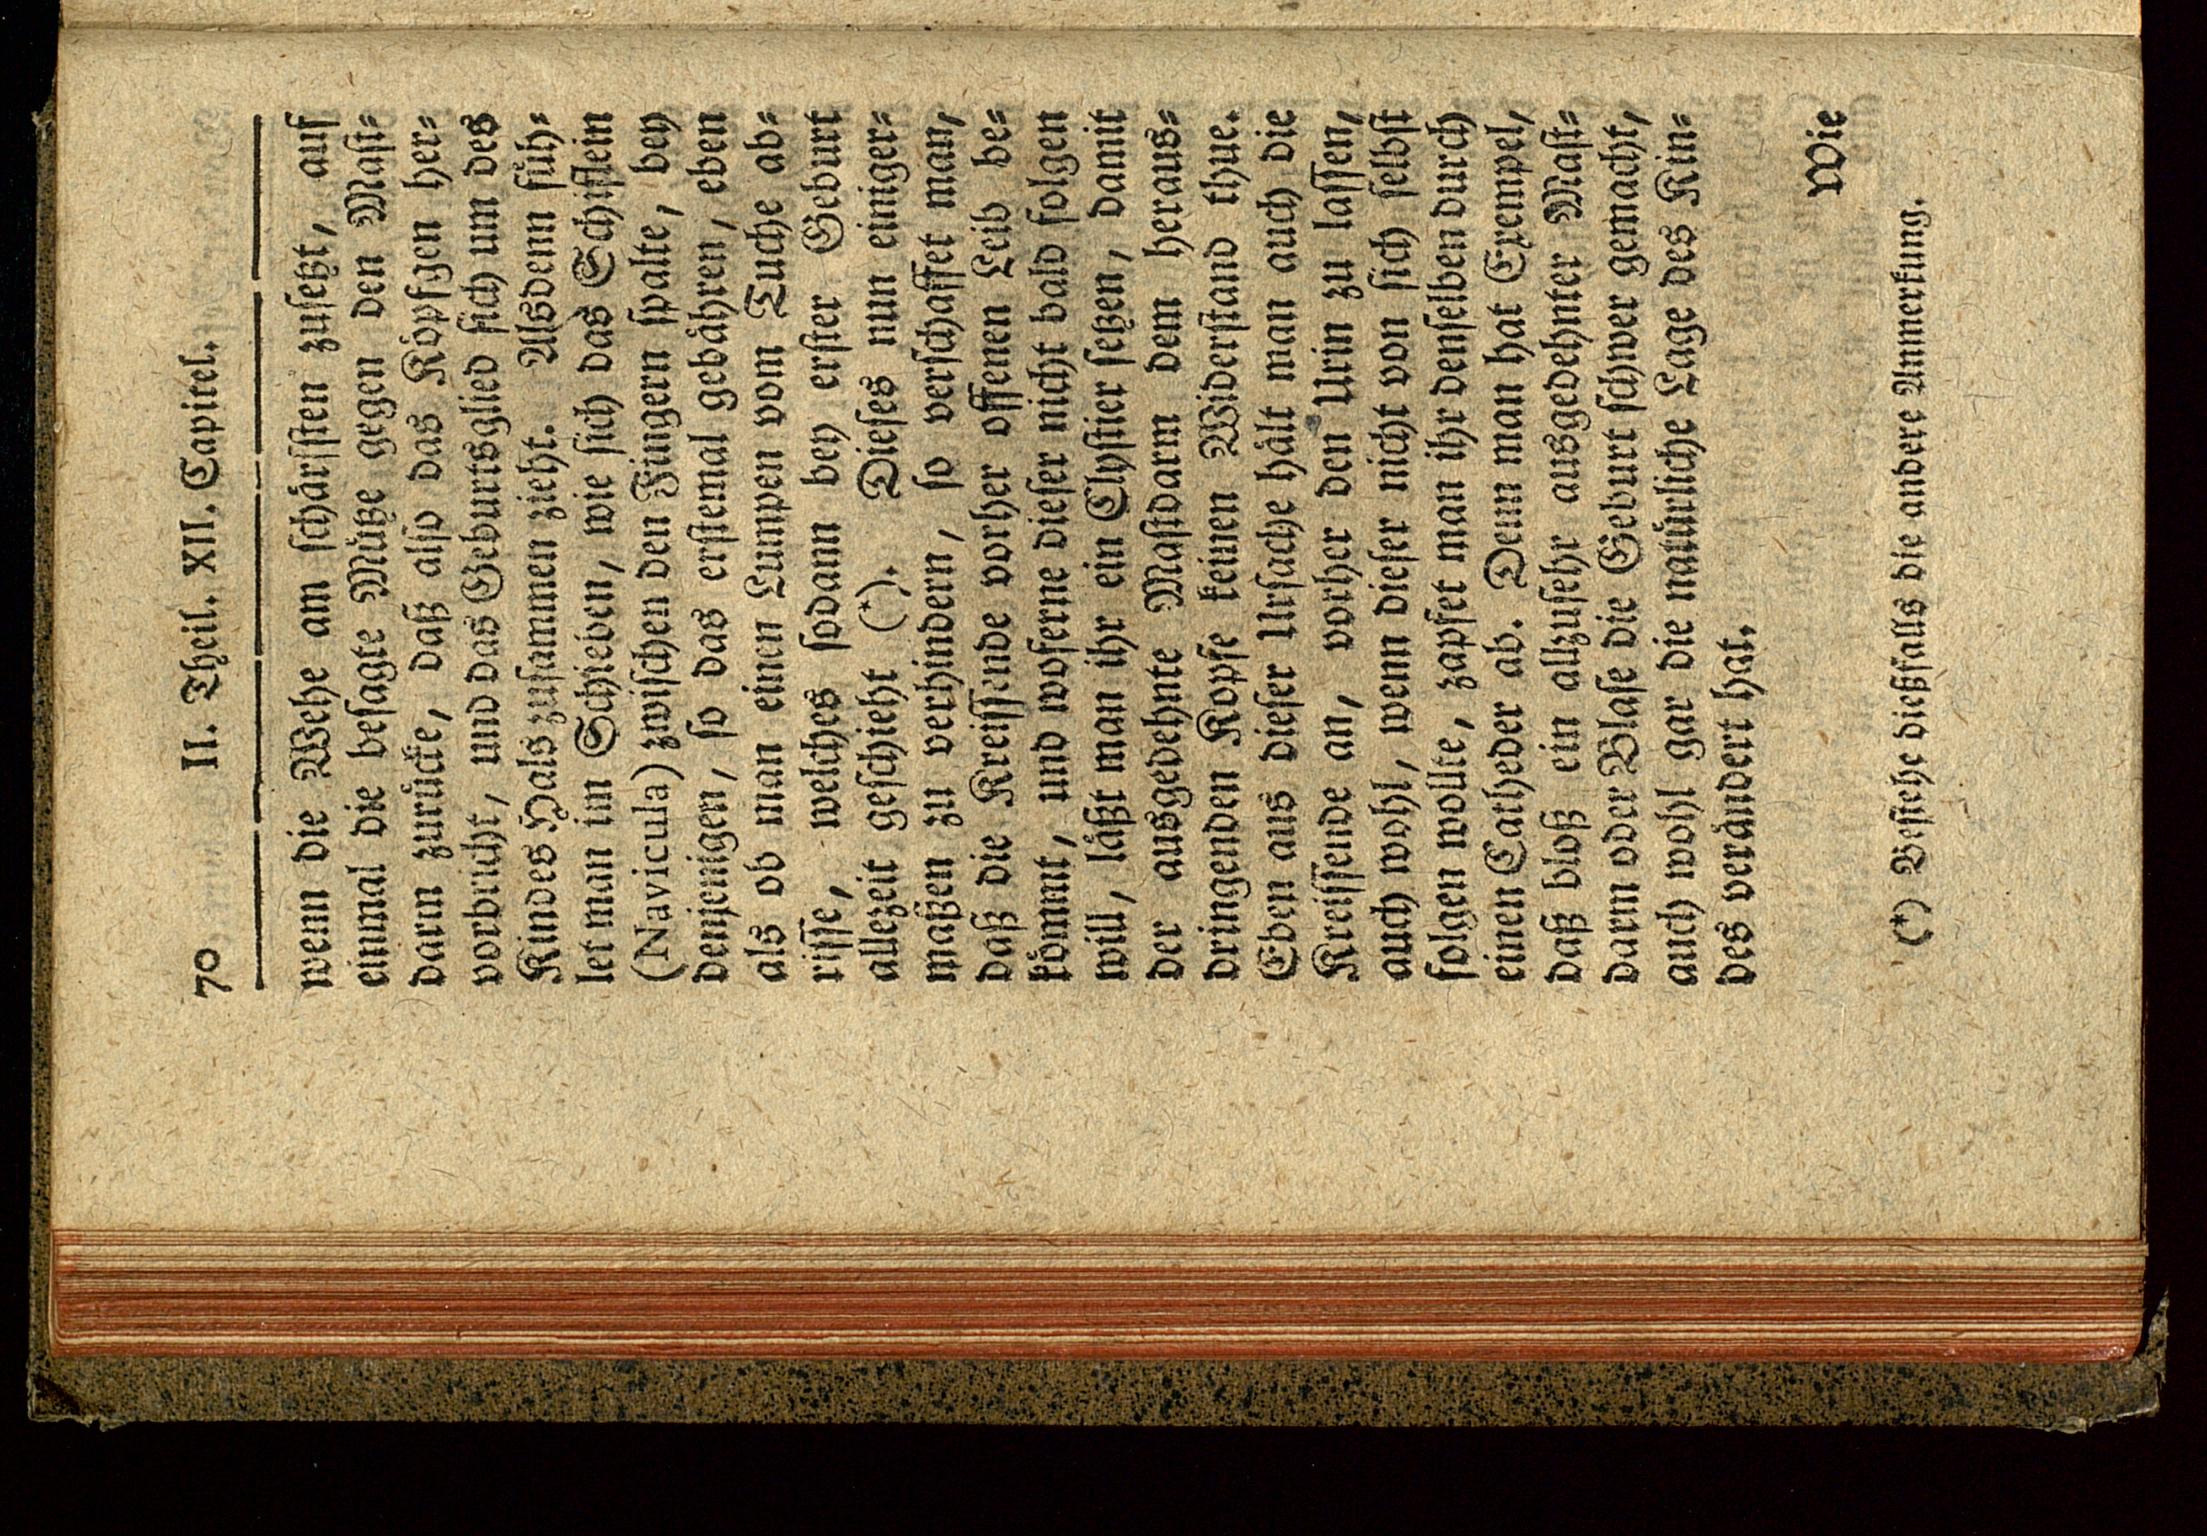 70 II. Theil. XII. Capitel.
wenn die Wehe am ſchärſſten zuſetzt, auf
einmal die beſagte Mütze gegen den Maſt⸗
darm zurücke, daß alſo das Köpfgen her⸗
vorbricht, und das Geburtsglied ſich um des
Kindes Hals zuſammen zieht. Alsdenn füh⸗
let man im Schieben, wie ſich das Schiflein
(Navicula) zwiſchen den Fingern ſpalte, bey
denjenigen, ſo das erſtemal gebähren, eben
als ob man einen Lumpen vom Tuche ab⸗
riſſe, welches ſodann bey erſter Geburt
allezeit geſchieht (*). Dieſes nun einiger⸗
maßen zu verhindern, ſo verſchaffet man,
daß die Kreiſſende vorher offenen Leib be⸗
kömmt, und woferne dieſer nicht bald folgen
will, läßt man ihr ein Clyſtier ſetzen, damit
der ausgedehnte Maſtdarm dem heraus⸗
dringenden Kopfe keinen Widerſtand thue.
Eben aus dieſer Urſache hält man auch die
Kreiſſende an, vorher den Urin zu laſſen,
auch wohl, wenn dieſer nicht von ſich ſelbſt
folgen wollte, zapfet man ihr denſelben durch
einen Catheder ab. Denn man hat Exempel,
daß bloß ein allzuſehr ausgedehnter Maſt⸗
darm oder Blaſe die Geburt ſchwer gemacht,
auch wohl gar die natürliche Lage des Kin⸗
des verändert hat.
Wie
(*) Beſiehe dießfalls die andere Anmerkung.